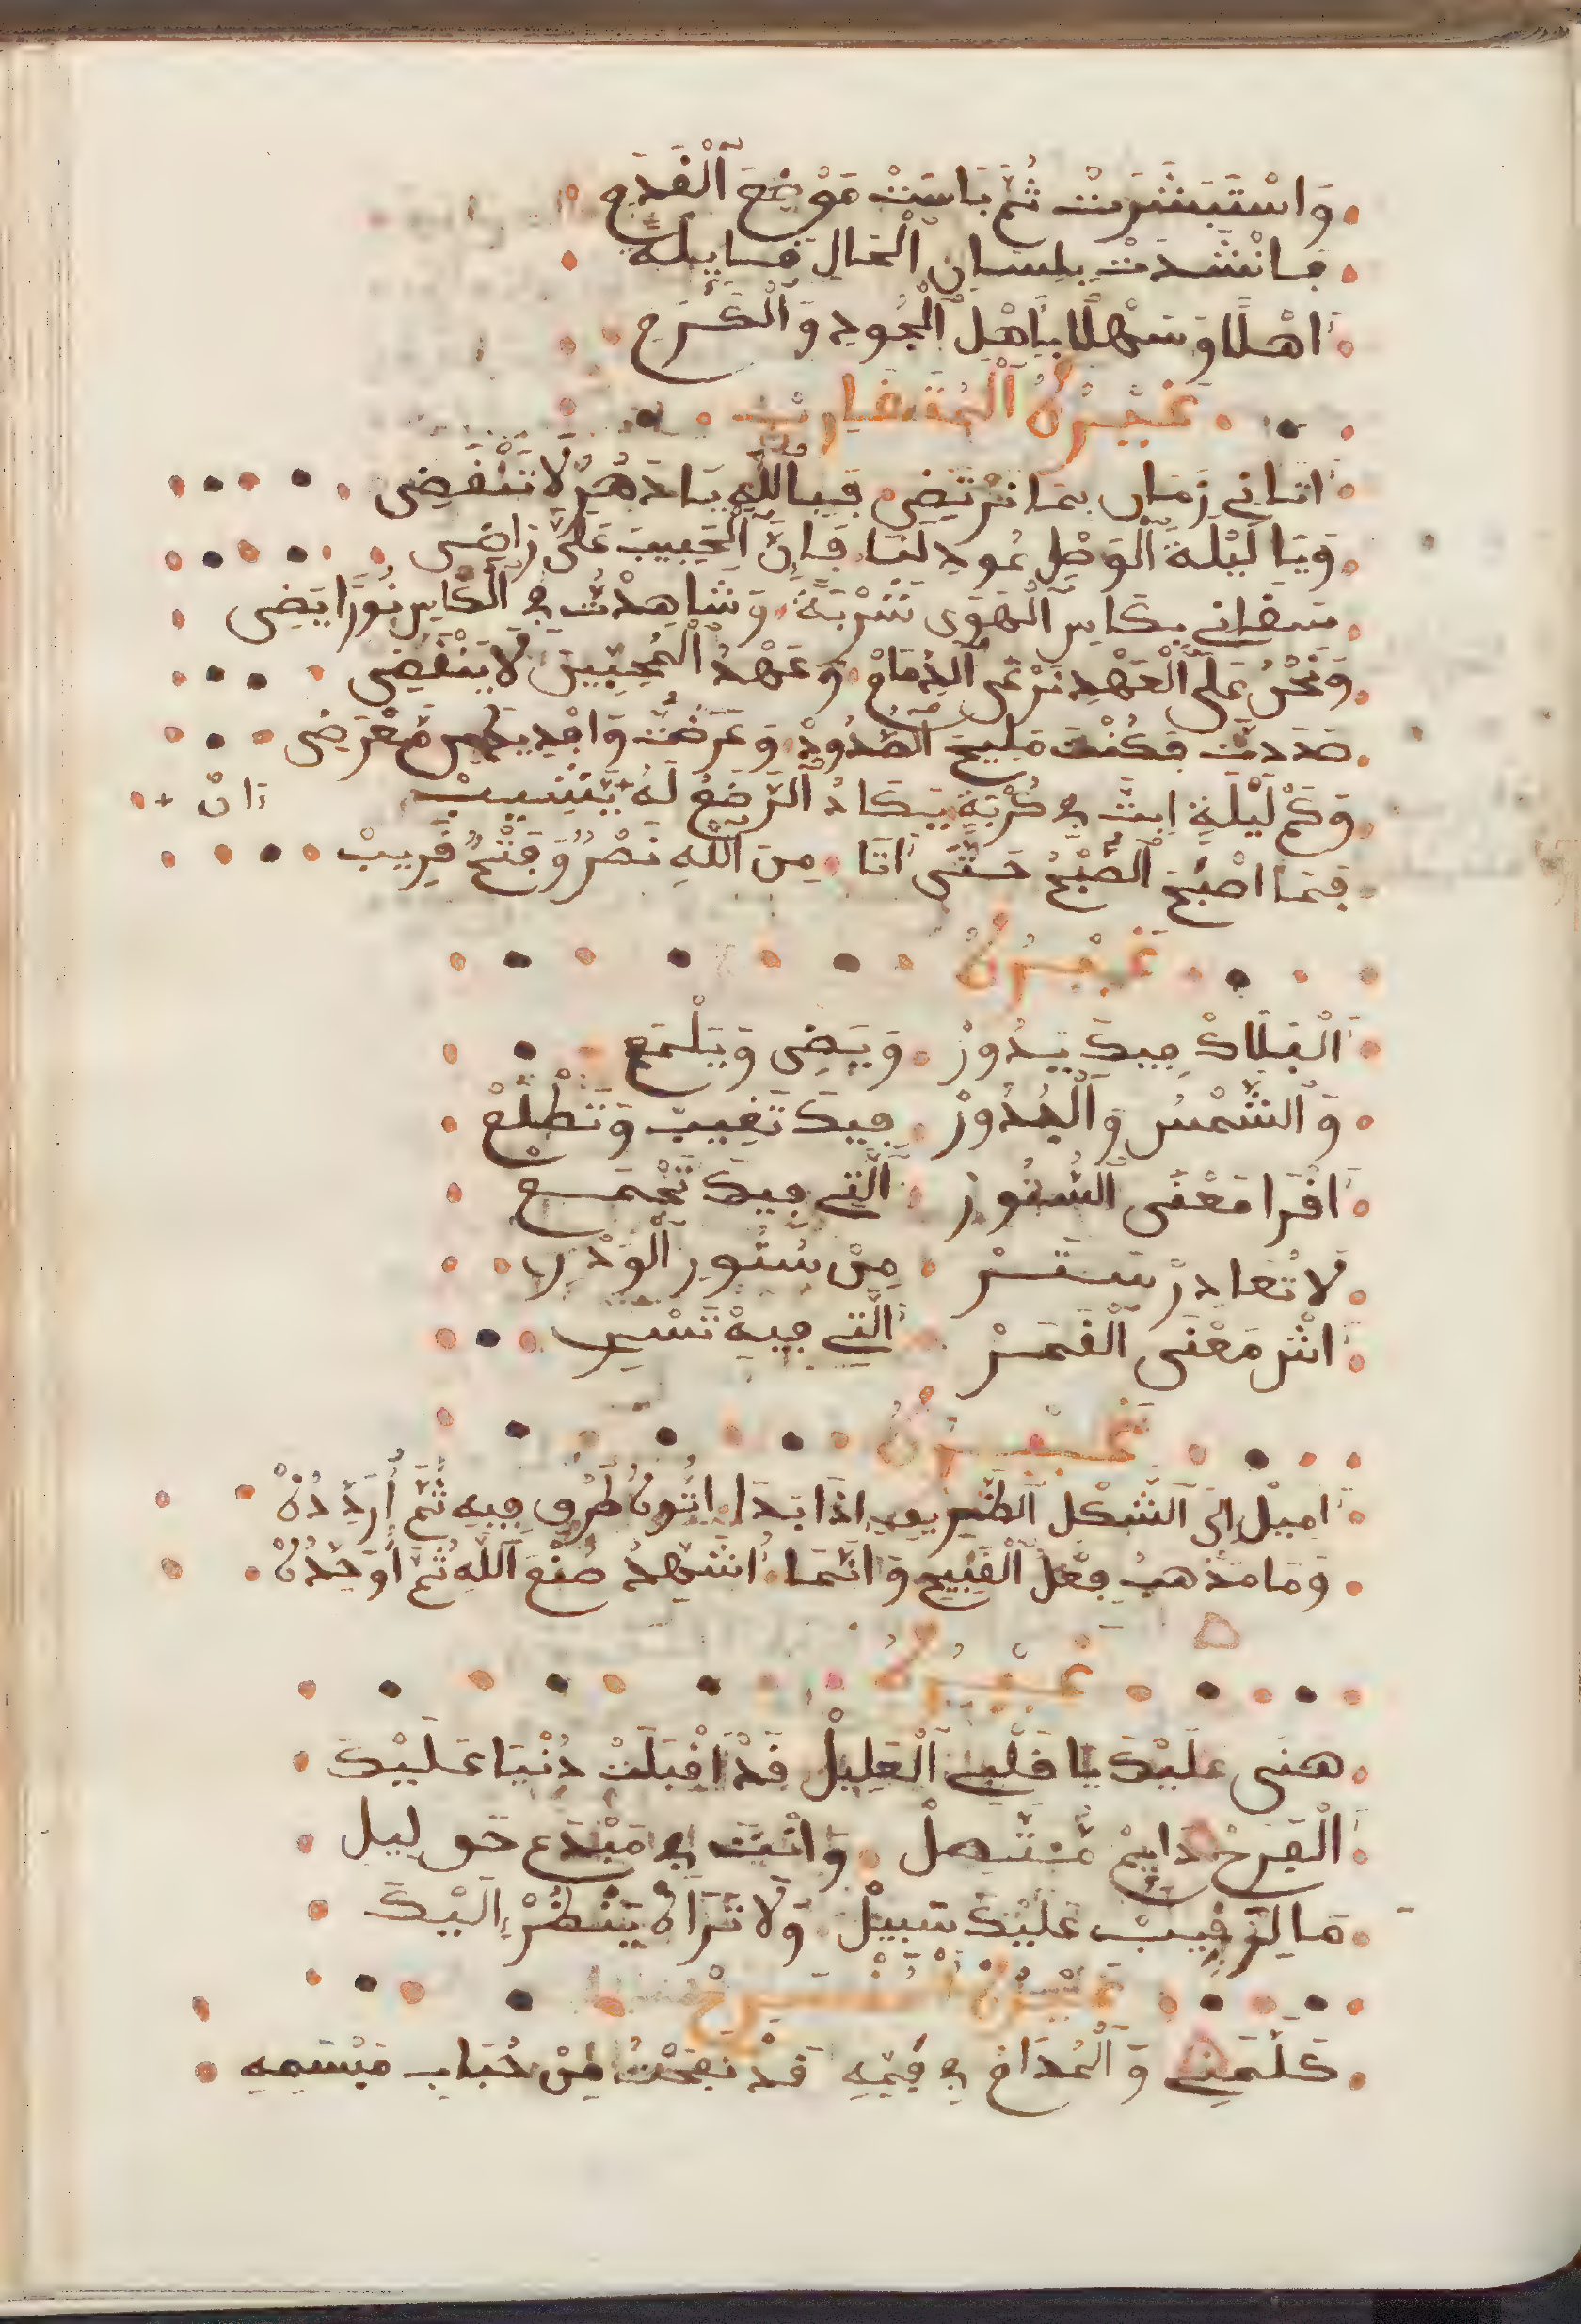 وَاسْتَبَشَرَتْ ثُمَّ بَاسَتْ مَوْضِعَ الْقَدَمِ
فَانْشَدَتْ بِلِسَانِ الْحَالِ قَايِلَةً
اَهْلًا وَسَهْلًا بِاَهْلِ الْجُودِ وَالْكَرَمِ
غَيْرُهُ الْمُتَقَارِبْ
اَتَانِي زَمَان بِمَا نَرْتَضِي فَبِاللَّهِ يَا دَهْرُ لَا تَنْقَضِي
وَيَا لَيْلَةَ الْوَصْلِ عُودِ لَنَا فَاِنَّ الْحَبِيبَ عَلَيَّ رَاضِى
سَقَانِي بِكَاسِ الْهَوَى شَرْبَةً وَشَاهِدْتُ فِي الْكَاسِ نُورًا يَضِى
وَنَحْنُ عَلَى الْعَهْدِ نَرْعَى الذِّمَامْ وَعَهْدُ الْمُحِبِّينَ لَا يَنْقَضِى
صَدَدتَّ فَكُنْتَ مَلِيحَ الصُّدُودْ وَعَرَضْتَ وَافْدِيكَ مِن مَعْرَضِى
وَكَمْ لَيْلَةٍ اِبتُّ فِي كُرْبَةٍ يَكَادُ الرَّضِعُ لَهُ يَّشِيبْ اَانْ
فَمَا اصْبَحَ الصُّبْحُ حَتَّى اَتَا مِنَ اللَّهِ نَصْرٌ وَفَتْحٌ قَرِيبْ
غَيْرُهُ
اَلْفَلَاكْ فِيكَ يَدُورْ وَيَضِى وَيَلْمَع
وَالشَّمْسُ وَالْبُدُورْ فِيكَ تَغِيبْ وَتَطْلَعْ
اَقْرَا مَعْنَى السُّتُورْ اَلَّتِي فِيكَ تَجْمَع
لَا تُغَادِرْ سَتَرْ مِنْ سُتُورِ الْوَدْرِ
اَنْتَر مَعْنَى الْقَمَرْ اَلَّتِي فِيهْ تَسْرِ
غَيْرُهُ
اَمِيلْ اِلَى الشَّكْلِ الظَّرِيفِ اِذَا بَدَا اُنَزِّهُ طَرْفِ فِيهِ ثُمَّ أُرَدِّدُهْ
وَمَا مَذْهَبِ فِعْلُ الْقَبِيحِ وَاِنَّمَا اُشَهِدُ صُنْعَ اللَّهِ ثُمَّ اُوَحِّدُهْ
غَيْرُهُ
هَنَى عَلَيْكَ يَا قَلْبِي الْعَلِيلْ قَدْ اَقْبَلَتْ دُنْيَا عَلَيْكَ
اَلْفَرَحْ دَايِمْ مُتَّصِلْ وَانْتَ فِي مَبْدَع
مَا لِرَّقِيبْ عَلَيْكَ سَبِيلْ وَلَا تَرَاهُ يَنْظُرْ اِلَيْكَ
غَيْرُهُ
كَلَّمَنِي وَالْمُدَامُ فِي فَمِهِ قَدْ نَفَحَتْ مِنْ حُبَابِ مَبْسَمِهِ